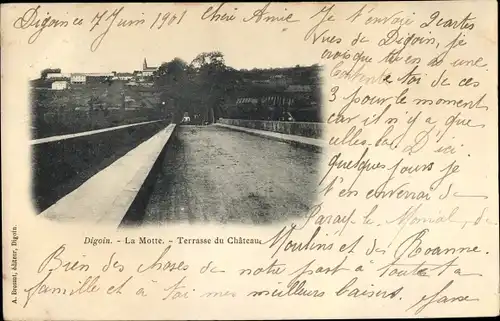 Digoin ce 7 Juin 1901 Chère Amie
Je t'envoie 2 cartes
vues de Digoin, je
crois que tu en a une
toi de ces
3 pour le moment
car il n'y a que
celles-là. D'ici
quelques jours je
t'en enverrai de
Paray-le-Monial, de
Moulins et de Roanne.
Bien des choses de notre part à toute ta
famille et à toi mes meilleurs baisers. Jane
Digoin. - La Motte. - Terrasse du Château.
A. Degeust, éditeur, Digoin.